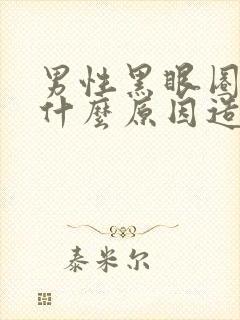 男性黑眼圈
什麼原因造
泰米尔